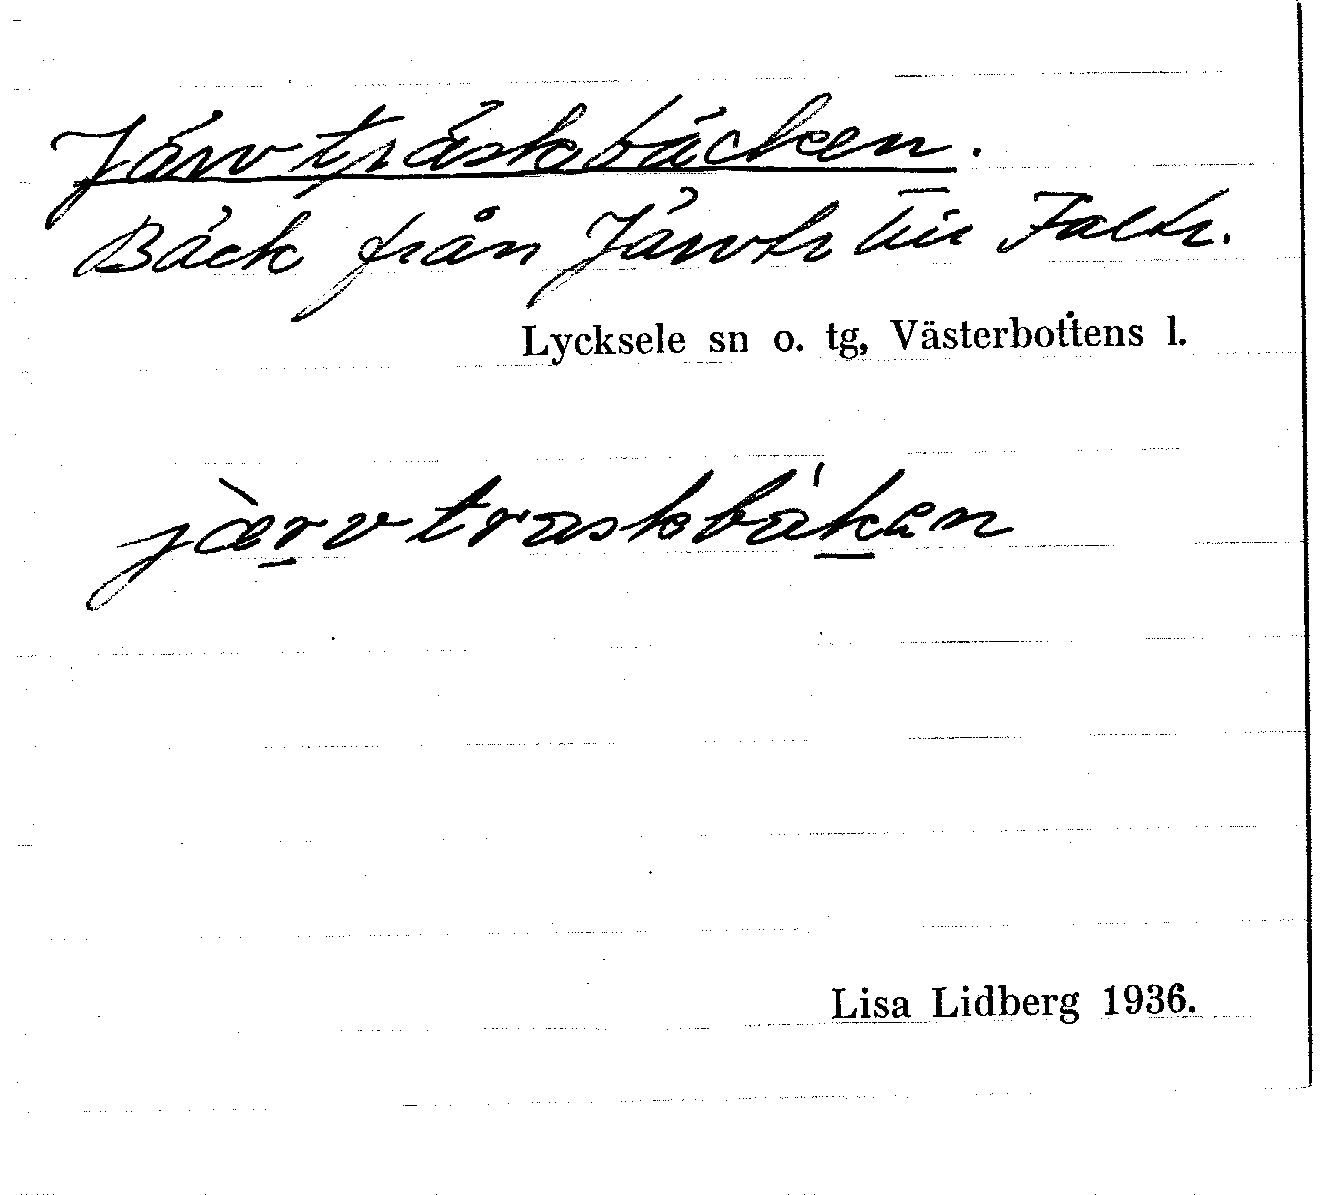 Järvträskbäcken.
Bäck från Järvtr till Faltr.
Lycksele sn o. tg, Västerbottens l.
jàrvtraskbák̲en
Lisa Lidberg 1936.